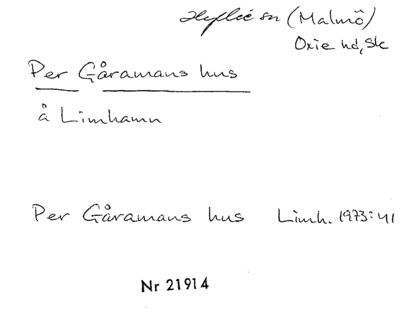 Hyllie sn (Malmö)
Oxie hd, Sk
Per Gåramans hus
å Limhamn
Per Gåramans hus Limh. 1973:41
Nr 21914